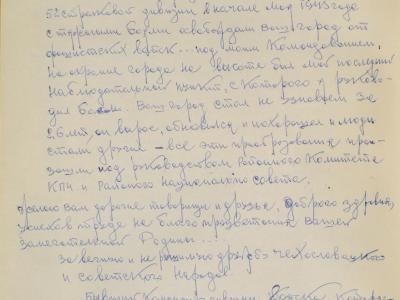 52 стрелковой дивизии в начале мая 1945 года
с тяжелыми боями освобождали Ваш город от
фашистских войск... под моим командованием,
на окраине города на высоте был мой последний
наблюдательный пункт, с которого я руково-
дил боем. Ваш город стал не узноваем за
лет, он вырос, обновился и похорошел и люди
стали другие - все эти преобразования прои-
зошли под руководством Районного Комитета
КПЧ и Районого национального совета.
Желаю Вам дорогие товарищи и друзья, доброго здоровья,
успехов в труде на благо процветания Вашей
замечательной Родины...
За вечную и не рушимую дружбу чехословацкого
и советского народов.
Бывший Командир дивизии